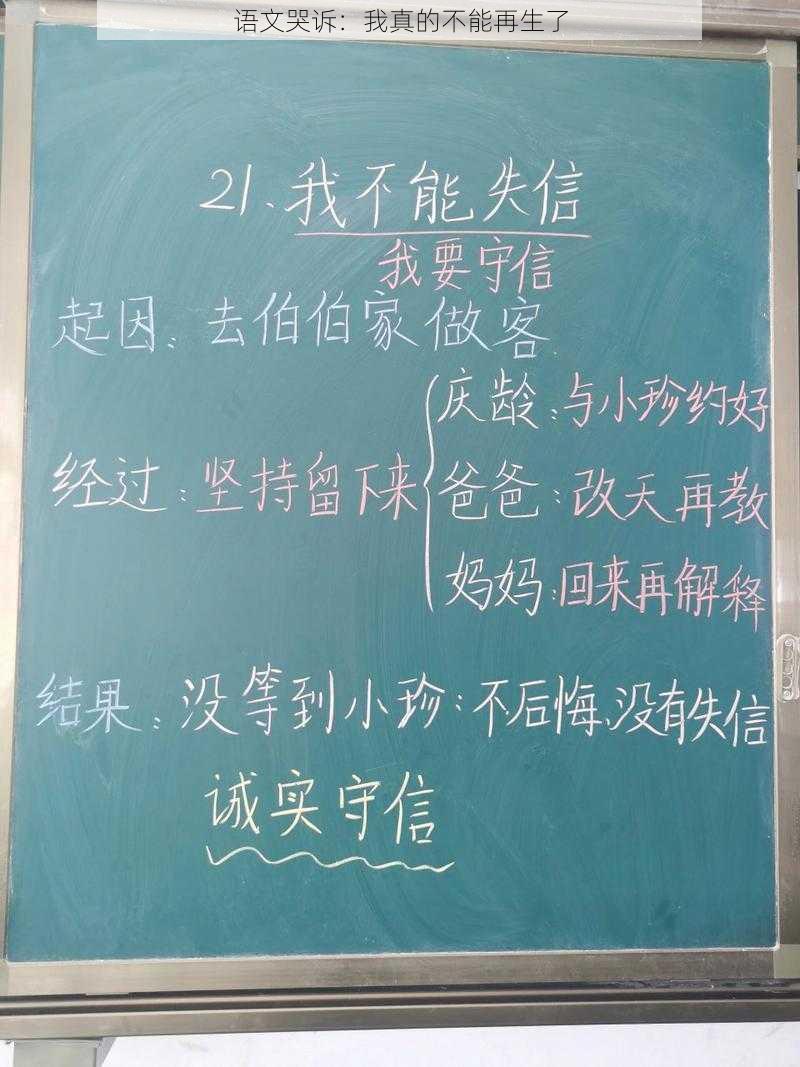 语文哭诉：我真的不能再生了
21、我不能失信
我要守信
起因：去伯伯家做客
庆龄：与小珍约好
经过：坚持留下来
爸爸：改天再教
妈妈：回来再解释
结果：没等到小珍：不后悔、没有失信
诚实守信